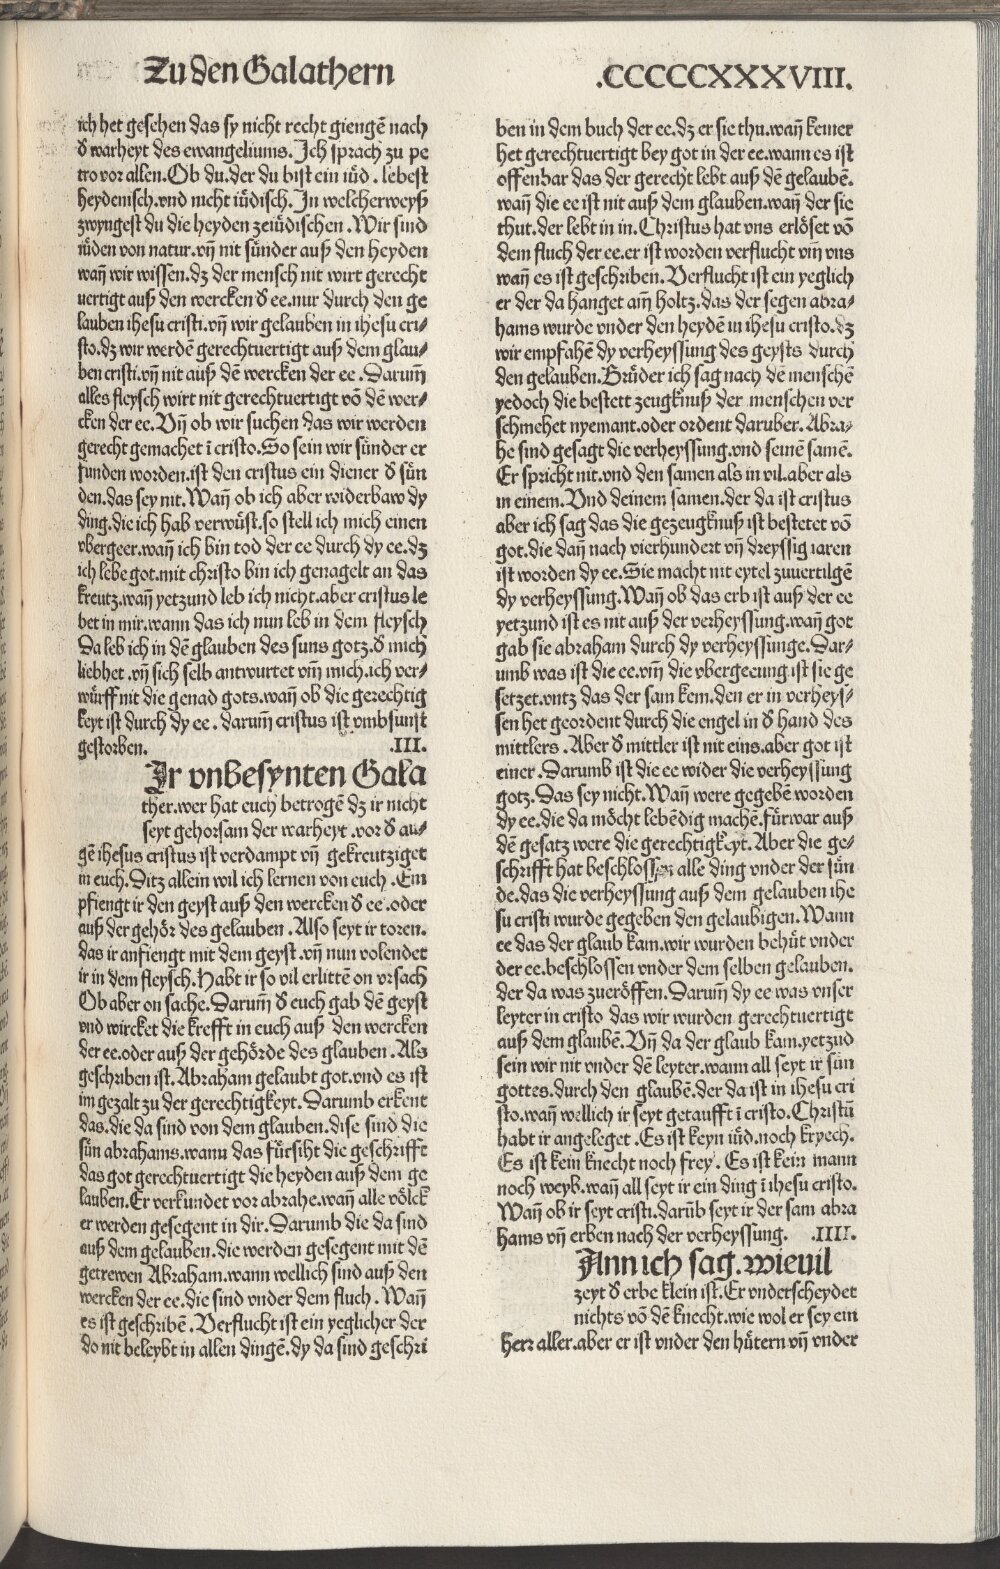 Zu den Galathern
.CCCCCXXXVIII.
ich het gesehen das sy nicht recht giengē nach
d̕ warheyt des ewangeliums. Jch sprach zu pe
tro vor allen. Ob du. der du bist ein iüd. lebest
heydenisch. vnd nicht iüdisch. Jn welcherweyß
zwyngest du die heyden zeiüdischen. Wir sind
iüden von natur. vn̄ nit sünder auß den heyden
wan̄ wir wissen. dz der mensch nit wirt gerecht
uertigt auß den wercken d̕ ee. nur durch den ge
lauben ihesu cristi. vn̄ wir gelauben in ihesu cri⸗
sto. dz wir werdē gerechtuertigt auß dem glau⸗
ben cristi. vn̄ nit auß dē wercken der ee. Darum̄
alles fleysch wirt nit gerechtuertigt vō dē wer⸗
cken der ee. Vn̄ ob wir suchen das wir werden
gerecht gemachet ī cristo. So sein wir sünder er
funden worden. ist den cristus ein diener d̕ sün
den. das sey nit. Wan̄ ob ich aber widerbaw dy
ding. die ich hab verwüst. so stell ich mich einen
vbergeer. wan̄ ich bin tod der ee durch dy ee. dz
ich lebe got. mit christo bin ich genagelt an das
kreutz. wan̄ yetzund leb ich nicht. aber cristus le
bet in mir. wann das ich nun leb in dem fleysch
Da leb ich in dē glauben des suns gotz. d̕ mich
liebhet. vn̄ sich selb antwurtet vm̄ mich. ich ver⸗
würff nit die genad gots. wan̄ ob die gerechtig
keyt ist durch dy ee. darum̄ cristus ist vmbsunst
gestorben. .III.
Ir vnbesynten Gala
ther. wer hat euch betrogē dz ir nicht
seyt gehorsam der warheyt. vor d̕ au⸗
gē ihesus cristus ist verdampt vn̄ gekreutziget
in euch. Ditz allein wil ich lernen von euch. Em
pfiengt ir den geyst auß den wercken d̕ ee. oder
auß der gehör des gelauben. Also seyt ir toren.
das ir anfiengt mit dem geyst. vn̄ nun volendet
ir in dem fleysch. Habt ir so vil erlittē on vrsach
Ob aber on sache. Darum̄ d̕ euch gab dē geyst
vnd wircket die krefft in euch auß den wercken
der ee. oder auß der gehörde des glauben. Als
geschriben ist. Abraham gelaubt got. vnd es ist
im gezalt zu der gerechtigkeyt. Darumb erkent
das. die da sind von dem glauben. dise sind die
sün abrahams. wann das fürsiht die geschrifft
das got gerechtuertigt die heyden auß dem ge
lauben. Er verkundet vor abrahe. wan̄ alle völck
er werden gesegent in dir. Darumb die da sind
auß dem gelauben. die werden gesegent mit dē
getrewen Abraham. wann wellich sind auß den
wercken der ee. die sind vnder dem fluch. Wan̄
es ist geschribē. Verflucht ist ein yeglicher der
do nit beleybt in allen dingē. dy da sind geschri
ben in dem buch der ee. dz er sie thu. wan̄ keiner
het gerechtuertigt bey got in der ee. wann es ist
offenbar das der gerecht lebt auß dē gelaubē.
wan̄ die ee ist nit auß dem glauben. wan̄ der sie
thut. der lebt in in. Christus hat vns erlöset vō
dem fluch der ee. er ist worden verflucht vm̄ vns
wan̄ es ist geschriben. Verflucht ist ein yeglich
er der da hanget am̄ holtz. das der segen abra⸗
hams wurde vnder den heydē in ihesu cristo. dz
wir empfahē dy verheyssung des geysts durch
den gelauben. Brüder ich sag nach dē menschē
yedoch die bestett zeugknuß der menschen ver
schmehet nyemant. oder ordent daruber. Abra⸗
he sind gesagt die verheyssung. vnd seinē samē.
Er spricht nit. vnd den samen als in vil. aber als
in einem. Vnd deinem samen. der da ist cristus
aber ich sag das die gezeugknuß ist bestetet vō
got. die dan̄ nach vierhundert vn̄ dreyssig iaren
ist worden dy ee. Sie macht nit eytel zuuertilgē
dy verheyssung. Wan̄ ob das erb ist auß der ee
yetzund ist es nit auß der verheyssung. wan̄ got
gab sie abraham durch dy verheyssunge. Dar⸗
umb was ist die ee. vm̄ die vbergeeung. ist sie ge
setzet. vntz das der sam kem. den er in verheys⸗
sen het geordent durch die engel in d̕ hand des
mittlers. Aber d̕ mittler ist nit eins. aber got ist
einer. Darumb ist die ee wider die verheyssung
gotz. Das sey nicht. Wan̄ were gegebē worden
dy ee. die da möcht lebēdig machē. fürwar auß
dē gesatz were die gerechtigkeyt. Aber die ge⸗
schrifft hat beschlossen alle ding vnder der sün
de. das die verheyssung auß dem gelauben ihe
su cristi wurde gegeben den gelaubigen. Wann
ee das der glaub kam. wir wurden behüt vnder
der ee. beschlossen vnder dem selben gelauben.
der da was zueröffen. Darum̄ dy ee was vnser
leyter in cristo das wir wurden gerechtuertigt
auß dem glaubē. Vn̄ da der glaub kam. yetzud
sein wir nit vnder dē leyter. wann all seyt ir sün
gottes. durch den glaubē. der da ist in ihesu cri
sto. wan̄ wellich ir seyt getaufft ī cristo. Christū
habt ir angeleget. Es ist keyn iüd. noch kryech.
Es ist kein knecht noch frey. Es ist kein mann
noch weyb. wan̄ all seyt ir ein ding ī ihesu cristo.
Wan̄ ob ir seyt cristi. darūb seyt ir der sam abra
hams vn̄ erben nach der verheyssung. .IIII.
Ann ich sag. wieuil
zeyt d̕ erbe klein ist. Er vnderscheydet
nichts vō dē knecht. wie wol er sey ein
herr aller. aber er ist vnder den hütern vn̄ vnder